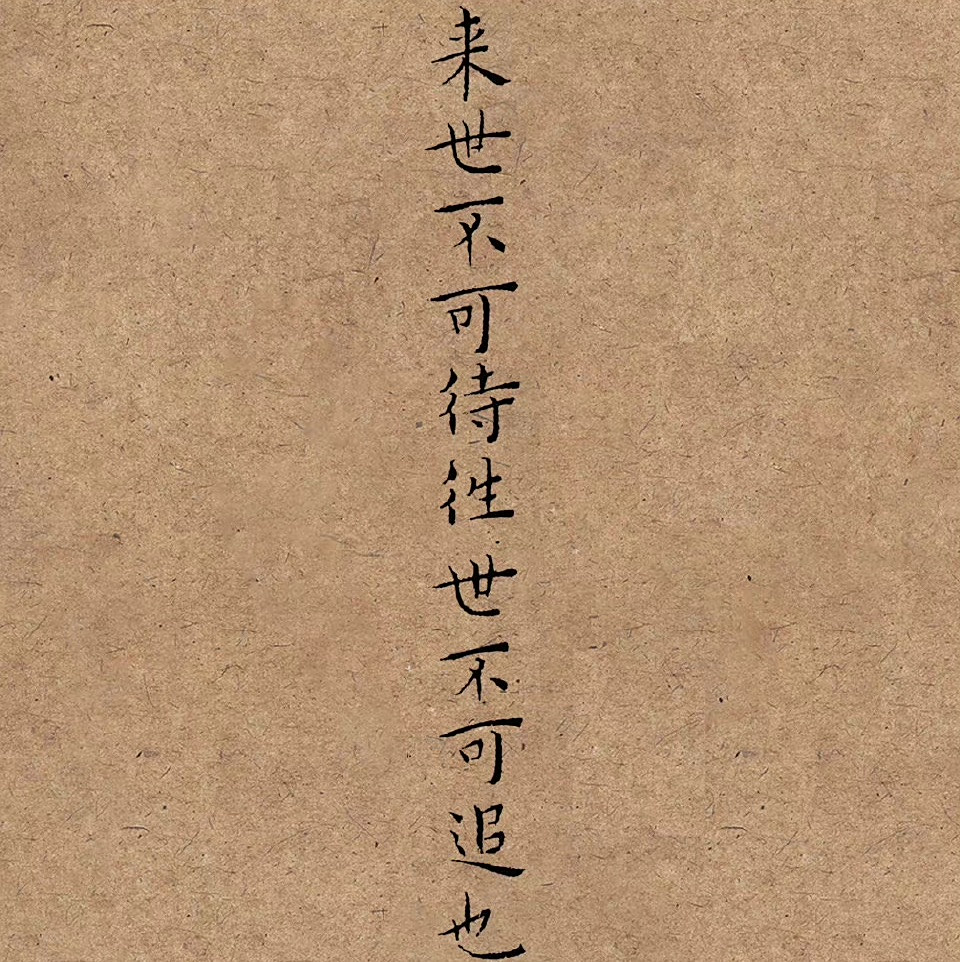 来世不可待往世不可追也